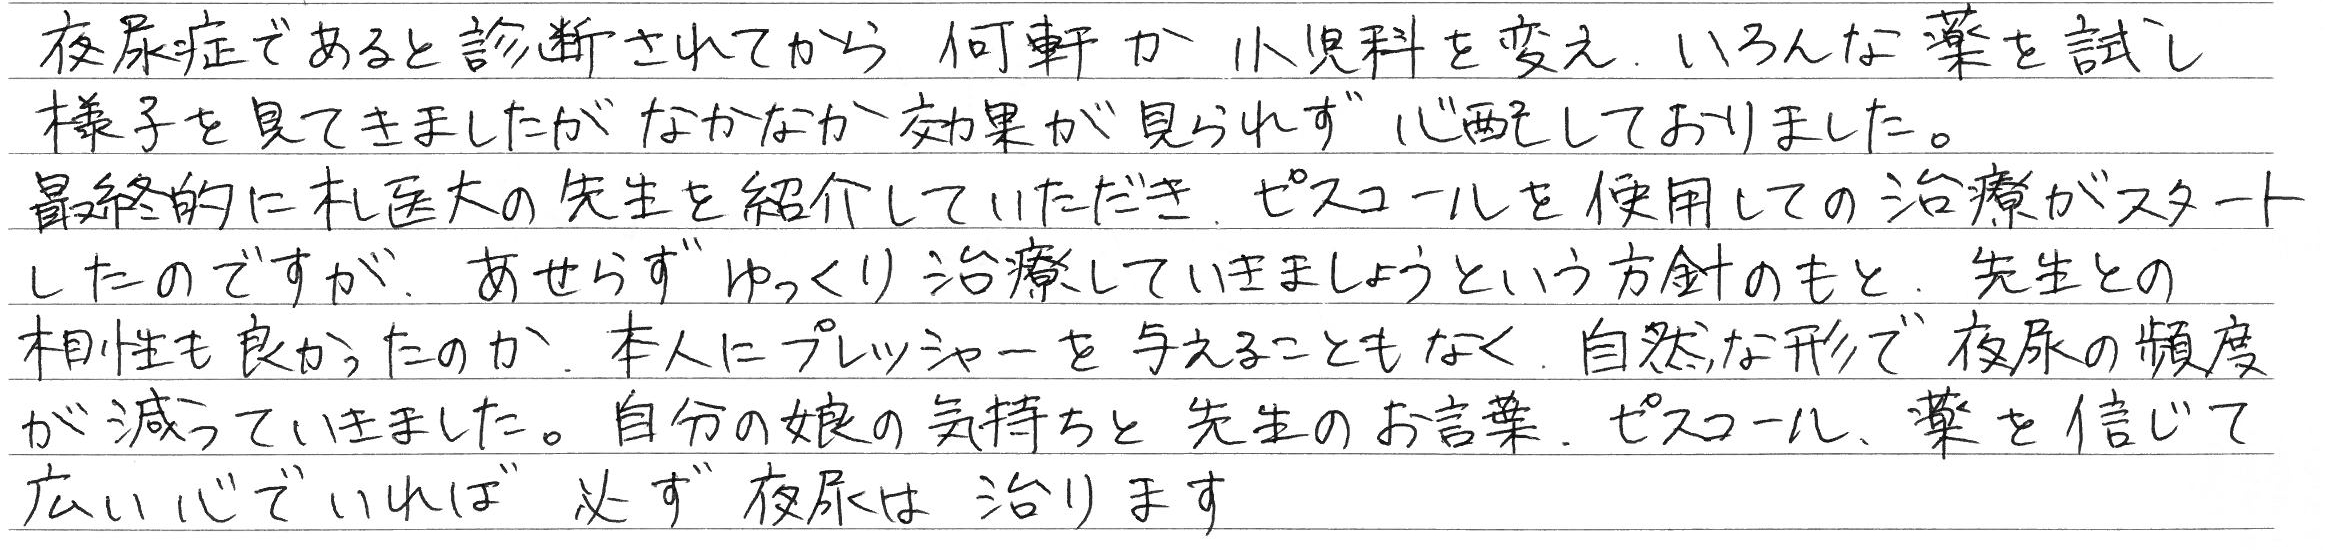 夜尿症であると診断されてから 何軒か 小児科を変え、いろんな薬を試し
様子を見てきましたが なかなか効果が見られず 心配しておりました。
最終的に札医大の先生を紹介していただき、ピスコールを使用しての治療がスタート
したのですが、あせらず ゆっくり治療していきましょうという方針のもと、先生との
相性も良かったのか、本人にプレッシャーを与えることもなく、自然な形で夜尿の頻度
が減っていきました。自分の娘の気持ちと先生のお言葉、ピスコール、薬を信じて
広い心でいれば 必ず 夜尿は 治ります